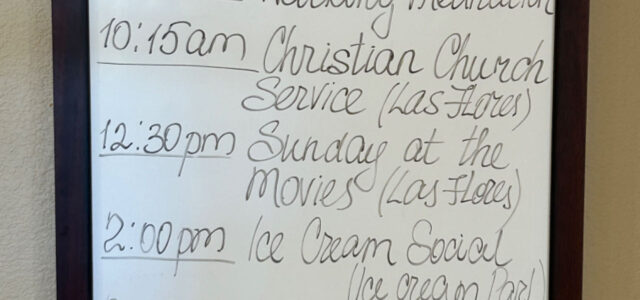 Meditation
10:15am Christian Church
Service (Las Flores)
12:30pm Sunday at the
Movies (Las Flores)
2:00pm Ice Cream Social
(Ice cream Parl